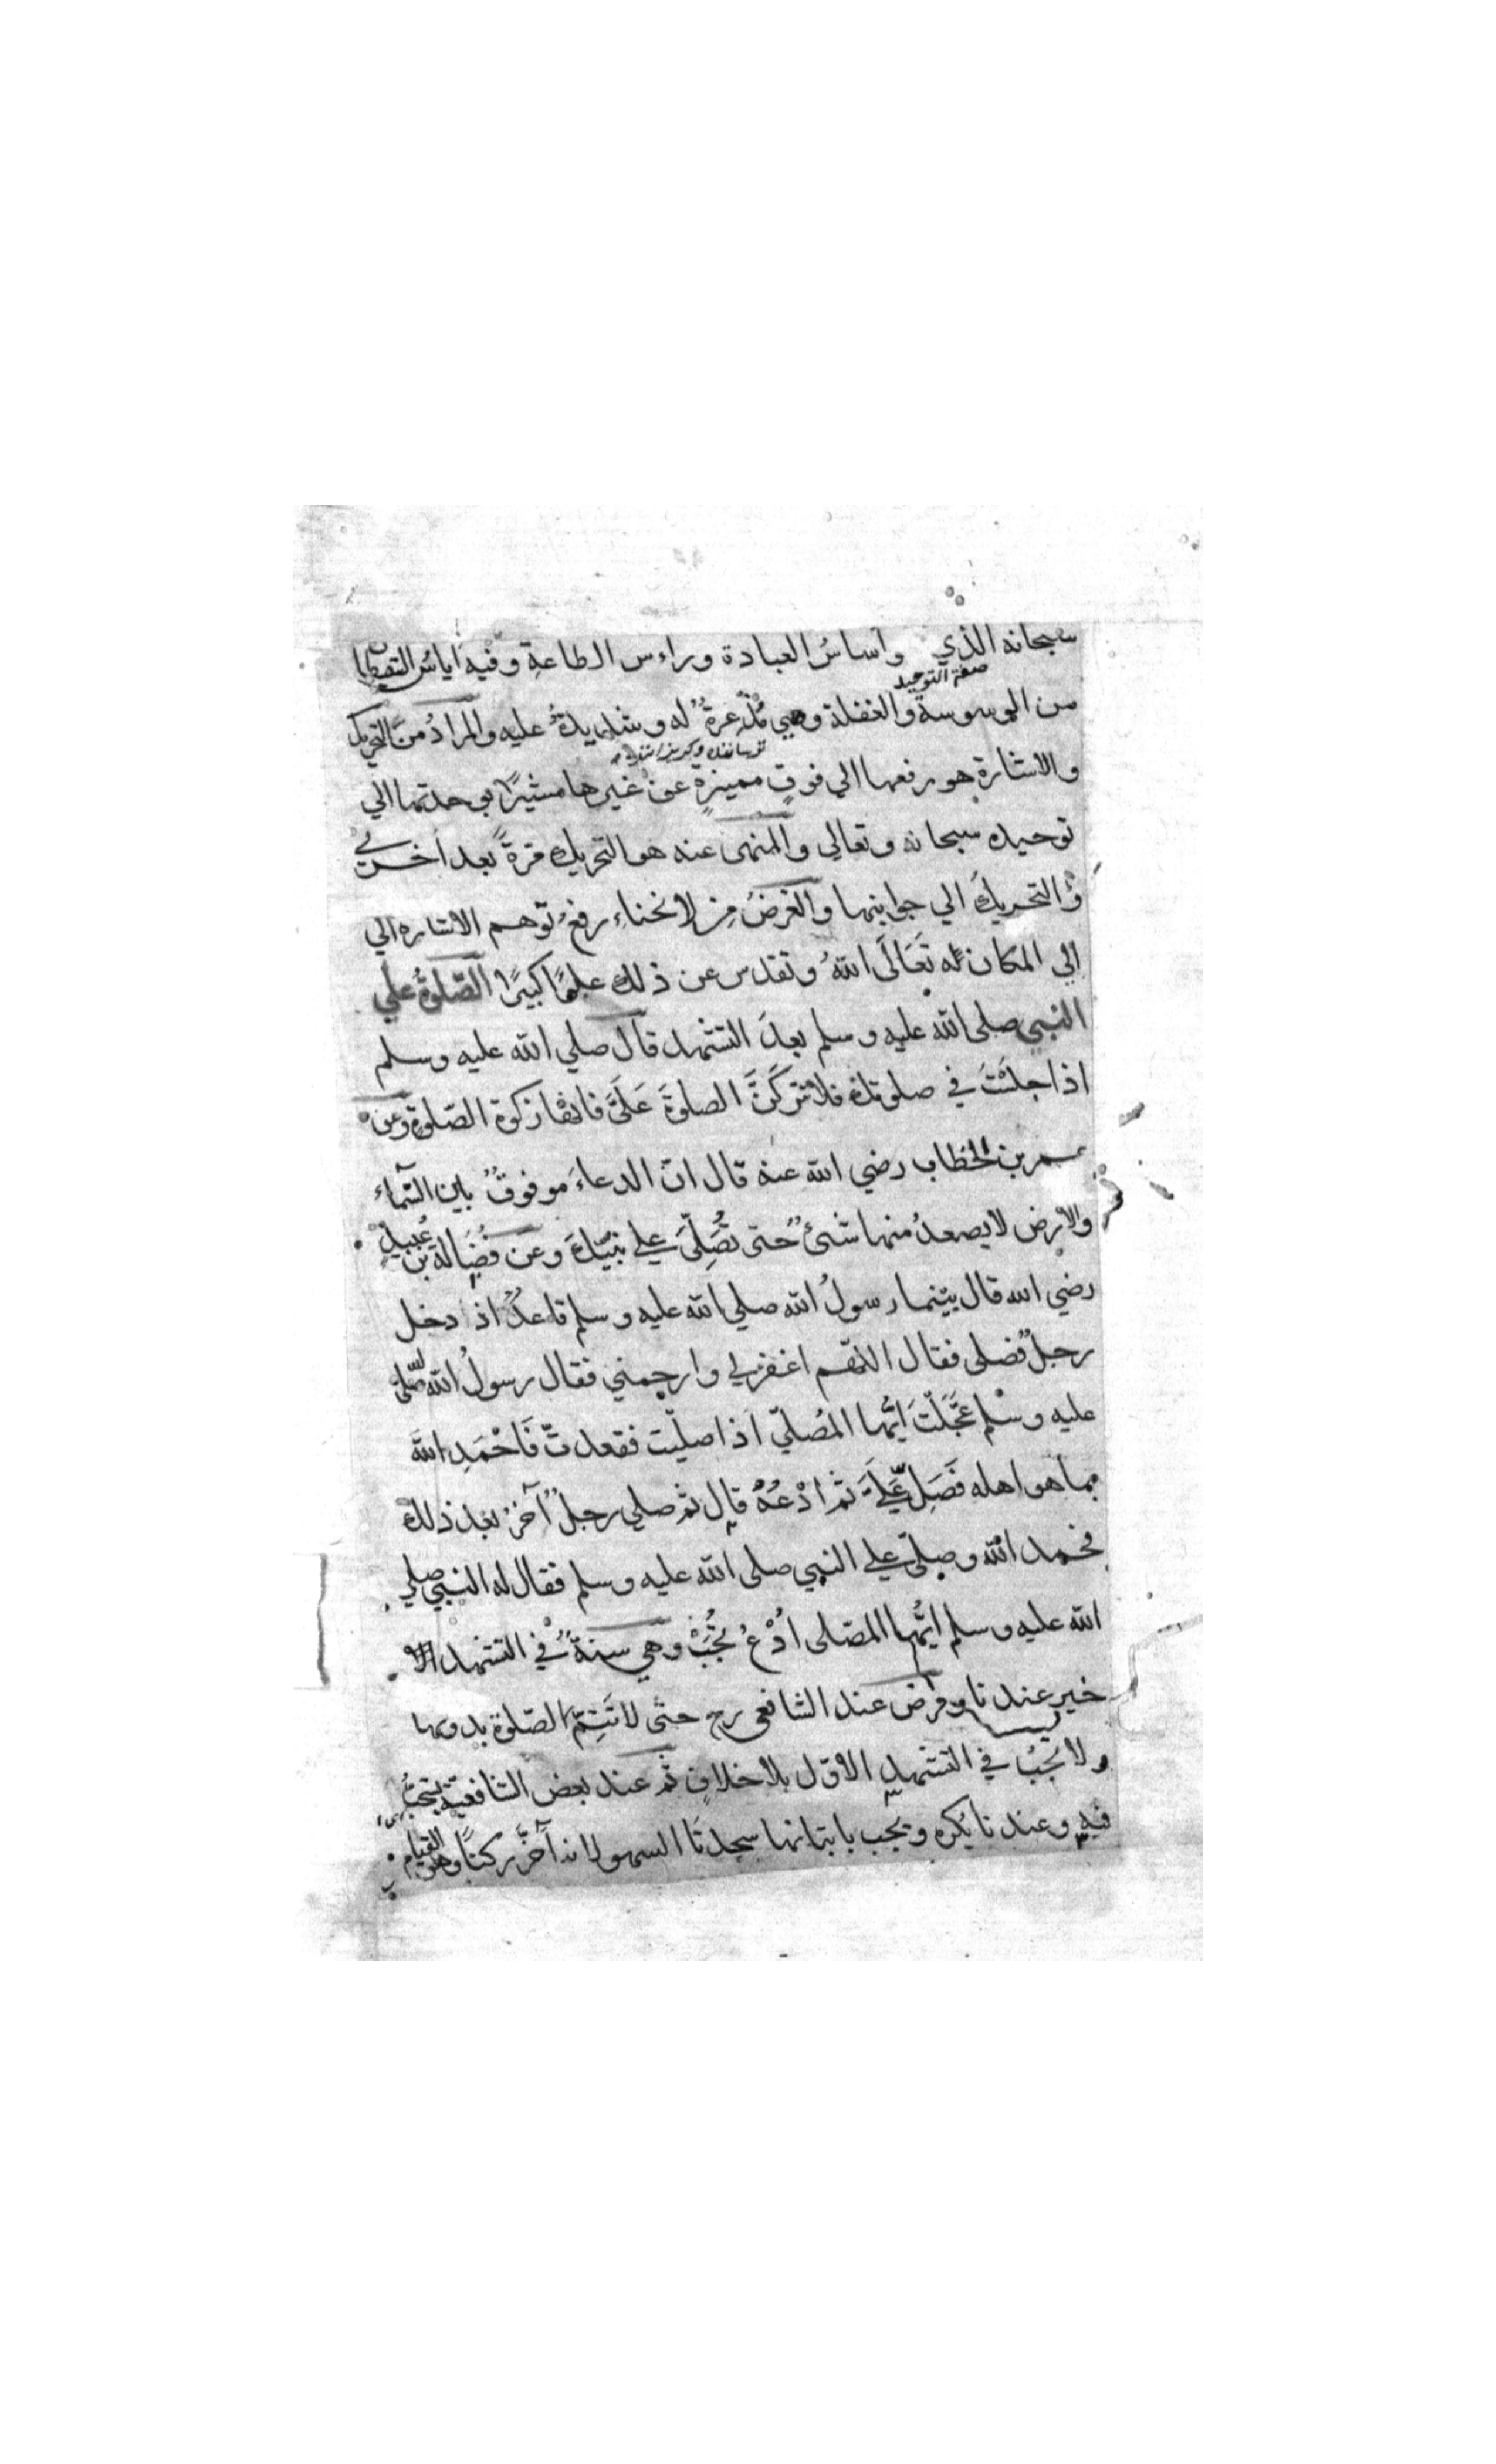 سبحانه الذي واساسُ العبادة وراءس الطاعةِ وفيه اياسُ الشيطان
صفة التوحيد
من الوسوسة والغفلة وهي مُذْعِرةٌ له وشديدةٌ عليه والمرادُ من التحريك
والاشارة هو رفعها الي فوقٍ مميزةٍ عن غيرها مشيرًا بوحدتها الي
توحيده سبحانه وتعالي والمنهى عنه هو التحريك مرةً بعد اخرى
وْالتحريكُ الي جوانبها والغرضُ من الانحناء رفعُ توهم الاشاره الي
الي المكان له تَعَالَى اللهُ وتقدس عن ذلك علوًا كبيرًا الصّلوةُ علي
النبي صلى الله عليه وسلم بعدَ التشهد قال صلي الله عليه وسلم
اذا جلسْتَ في صلوتك فلا تتركَنَّ الصلوةَ عَلَيَّ فانها زكوة الصّلوةِ وعن
عمر بن الخطاب رضي الله عنه قال انّ الدعاءَ موقوفٌ بين السّماء
والارض لا يصعدُ منها شئٌ حتى تُصَلِّيَ علي نبيّكَ وعن فُضَالة بن عُبيدٍ
رضي الله قال بينما رسولُ الله صلي الله عليه وسلم قاعدٌ اذا دخل
رجلٌ فصلى فقال اللّهم اغفرلي وارحمني فقال رسولُ الله صلّى الله
عليه وسلم عَجَّلْتَ ايُّها المُصلّي اذا صلّيت فقعدتّ فَاحْمَدِ اللهَ
بما هو اهله فَصَلِّ عَلَيَّ ثم ادْعُهُ قال ثم صلي رجلٌ آخرُ بعد ذلك
فحمد الله وصلّى علي النبي صلى الله عليه وسلم فقال له النبي صلي
الله عليه وسلم ايُّها المصّلى ادْعُ تُجَبْ وهي سنةٌ في التشهد الا
خير عندنا وفرض عند الشافعى رح حتّى لا تَتِمّ الصّلوة بدونها
ولا يجبُ في التشهد الاوّل بلا خلافٍ ثم عند بعض الشافعية يستحبُّ
فيه وعندنا يكره ويجب باتيانها سجدتَا السهو لانه آخَّر ركنًا وهو القيام